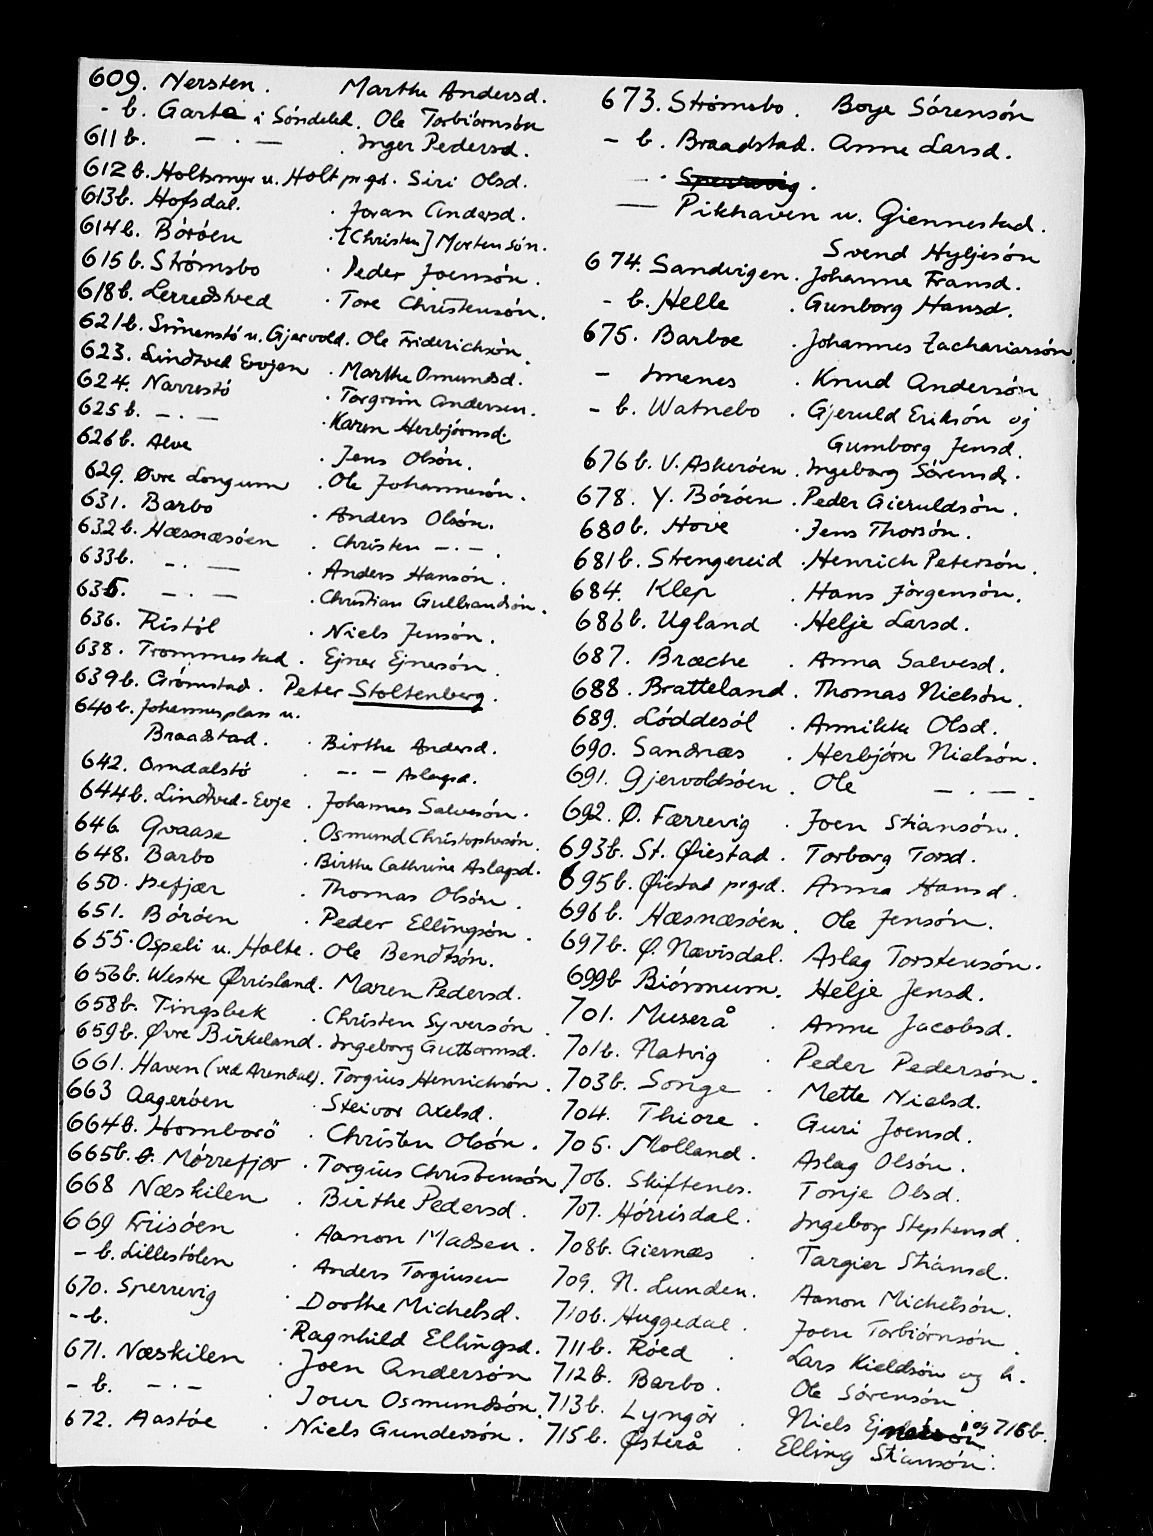 609. Nersten. Marthe Andersd.
- b. Garta i Söndeled. Ole Torbiörnsön
611 b. — . — . Inger Pedersd.
612 b. Holtsmyr u. Holt prgd. Siri Olsd.
613 b. Hofsdal. . Joran Andersd.
614 b. Böröen . [Christen] Mortensön.
615 b. Strömsbo . Peder Joensön.
618 b. Lerredsved . Tore Christensön.
621 b. Simenstö u. Gjervold. Ole Friderichsön.
623. Lindtved Evjen . Marthe Omundsd.
624. Narrestö . Torgrim Andersen.
625 b. — . — . Karen Herbjörnsd.
626 b. Alve . Jens Olsön.
629. Øvre Longum . Ole Johannesön.
631. Barbo . Anders Olsön.
632 b. Hæsnæsöen . Christen — . — .
633 b. — . — . Anders Hansön.
635. — . — . Christian Gulbrandsön.
636. Ristöl . Niels Jensön.
638. Trommestad . Ejner Ejnersön.
639 b. Grömstad . Peter Stoltenberg.
640 b. Johannesplass u.
Braadstad. . Birthe Andersd.
642. Omdalstö . — . — Aslagsd.
644 b. Lindtved-Evje . Johannes Salvesön.
646 Qvaase . Osmund Christophersön.
648. Barbo . Birthe Cathrine Aslagsd.
650. Isefjær . Thomas Olsön.
651. Böröen . Peder Ellingsön.
655. Ospeli u. Holte. Ole Bendtsön.
656 b. Westre Ørrisland. Maren Pedersd.
658 b. Tingsbek . Christen Syversön.
659 b. Øvre Birkeland. Ingeborg Guttormsd.
661. Haven (ved Arendal). Torgius Henrichsön.
663 Aageröen . Steivor Axelsd.
664 b. Homborö . Christen Olsön.
665 b. Mörrefjær . Torgius Christensön.
668 Næskilen . Birthe Pedersd.
669 Friisöen . Aanon Madsen.
- b. Lillestölen . Anders Torgiusen
670. Sperrevig . Dorthe Michelsd.
- b. . Ragnhild Ellingsd.
671. Næskilen . Joen Andersön
- b. — . — . Jour Osmundsön.
672. Aastöe . Niels Gundersön.
673. Strömsbo. Borje Sörensön
- b. Braadstad. Anne Larsd.
— . Sperrevig.
— Pikhaven u. Giennestad.
Svend Hyljesön
674. Sandvigen. Johanne Fransd.
- b. Helle . Gunborg Hansd.
675. Barboe . Johannes Zachariasön.
- Imenes . Knud Andersön
- b. Watnebo . Gjeruld Eriksön og
Gumborg Jensd.
676 b. V. Askeröen . Ingeborg Sörensd.
678. Y. Böröen . Peder Gieruldsön.
680 b. Hove . Jens Thorsön.
681 b. Strengereid . Henrich Petersön.
684. Klep . Hans Jörgensön.
686 b. Ugland . Helje Larsd.
687. Bræche . Anna Salvesd.
688. Bratteland. Thomas Nielsön.
689. Löddesöl . Annikke Olsd.
690. Sandnæs . Herbjörn Nielsön.
691. Gjervoldsöen . Ole — . — .
692. Ø. Færrevig . Joen Stiansön.
693 b. St. Øiestad . Torborg Torsd.
695 b. Øiestad prgrd. Anna Hansd.
696 b. Hæsnæsöen. Ole Jensön.
697 b. Ø. Nævisdal. Aslag Torstensön.
699 b Biörmum. Helje Jensd.
701. Muserå . Anne Jacobsd.
701 b. Natvig . Peder Pedersön.
703 b. Songe . Mette Nielsd.
704. Thiore . Guri Joensd.
705. Molland . Aslag Olsön.
706. Skiftenes. Tonje Olsd.
707. Hörrisdal. Ingeborg Stephensd.
708 b. Giernæs . Targier Stiansd.
709. N. Lunden. Aanon Michelsön.
710 b. Huggedal . Joen Torbiörnsön.
711 b. Röed . Lars Kieldsön og h.
712 b. Barbo . Ole Sörensön
713 b. Lyngör . Niels Ej og 716 b.
715 b. Østerå . Elling Stiansön.